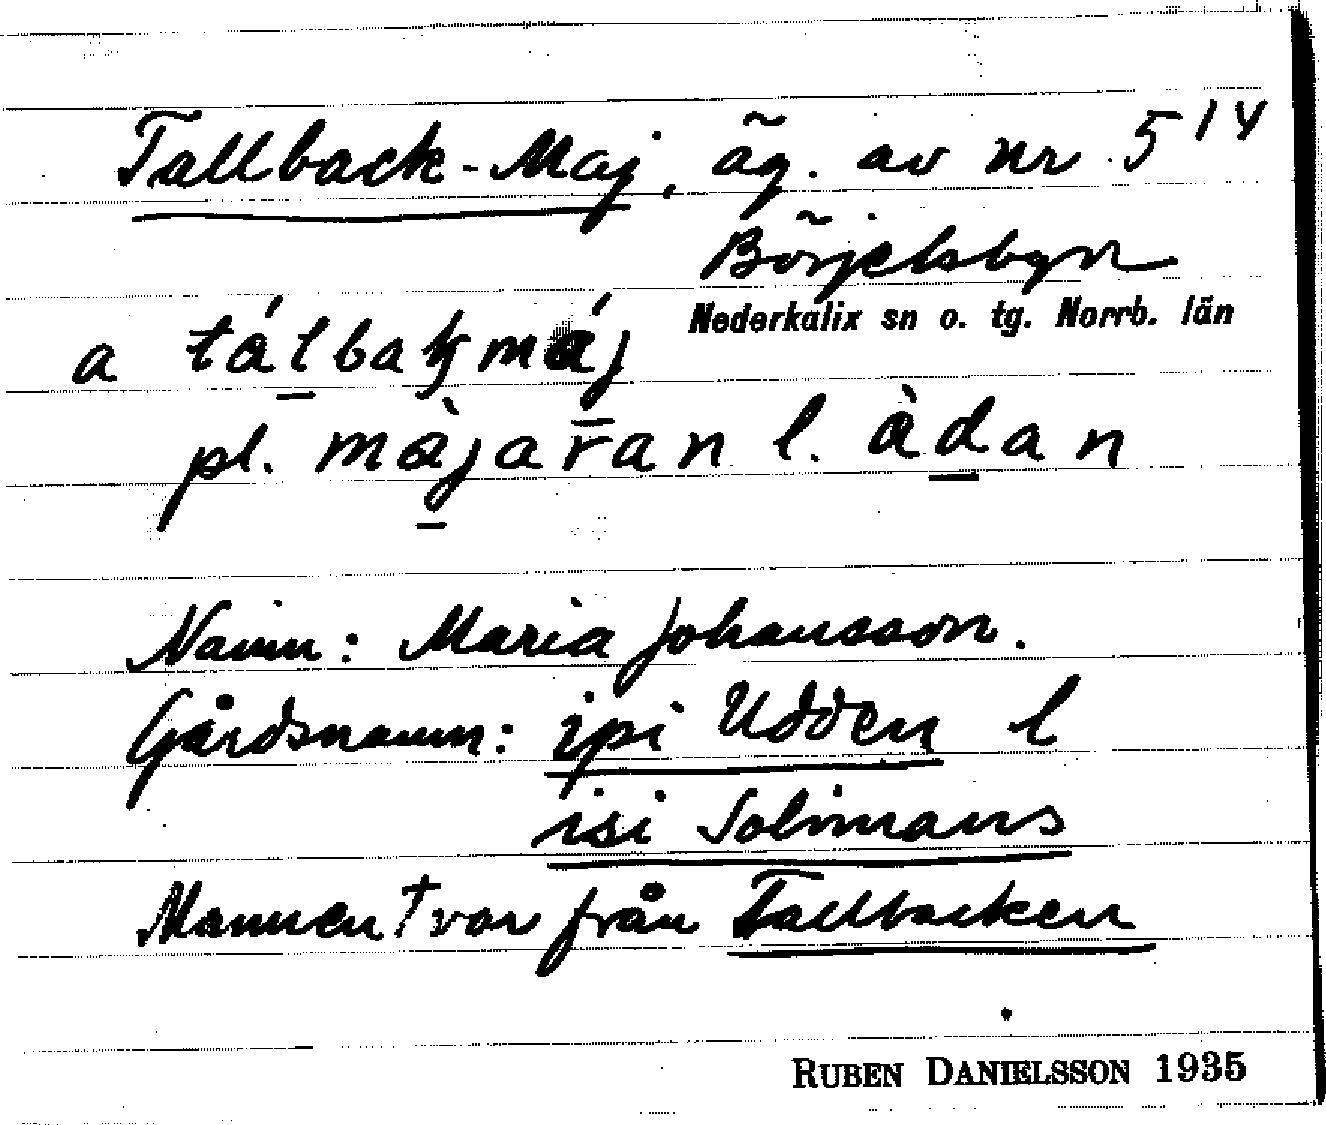 Tallback-Maj, äg. av nr 5 14
Börjelsbyn
Nederkalix sn o. tg. Norrb. län
a tálbakmáj
pl. màjaran l. àdan
Namn: Maria Johansson.
Gårdsnamn: ipi Udden l
isi Solimans
Mannen † var från Tallbacken
RUBEN DANIELSSON 1935